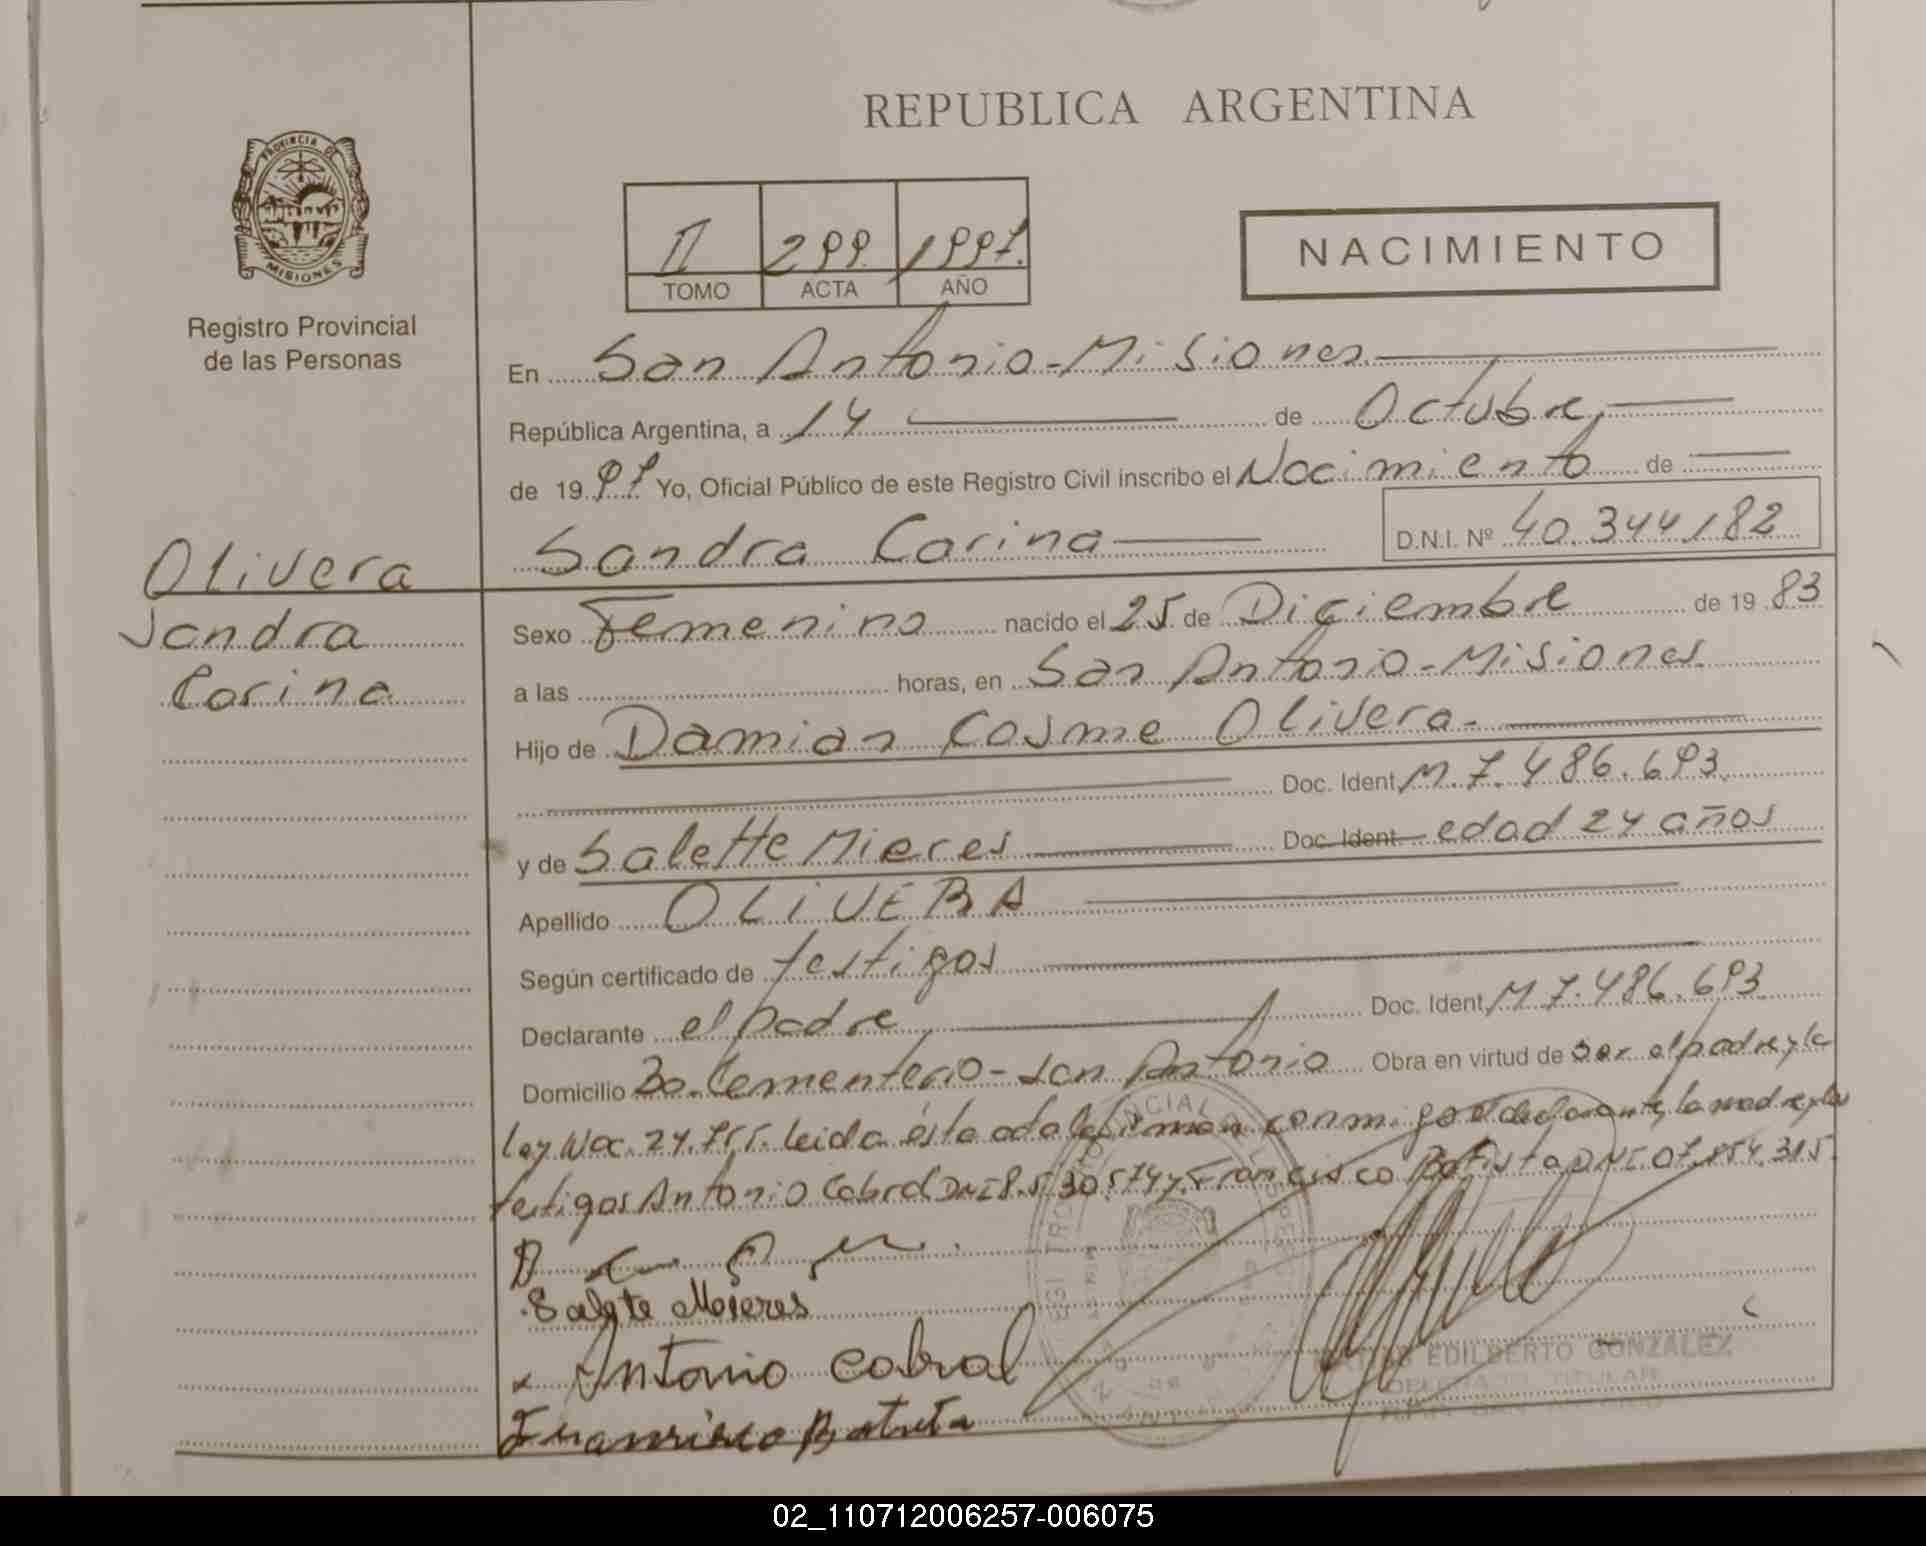 REPUBLICA ARGENTINA
PROVINCIA DE
MISIONES
Registro Provincial
de las Personas
II 299 1997.
TOMO ACTA AÑO
NACIMIENTO
En San Antonio-Misiones
República Argentina, a 14 de Octubre,
de 1997 Yo, Oficial Público de este Registro Civil inscribo el Nacimiento de
Sandra Carina D.N.I. Nº 40.344.182
Olivera
Sandra
Carina
Sexo Femenino nacido el 25 de Diciembre de 1983
a las horas, en San Antonio-Misiones
Hijo de Damian Cosme Olivera-
Doc. Ident M.7.486.693
y de Salette Mieres Doc. Ident edad 24 años
Apellido OLIVERA
Según certificado de testigos
Declarante el padre Doc. Ident M 7.486.693
Domicilio Bo. Cementerio-San Antonio Obra en virtud de ser el padre y la
ley Nac. 24.755. leida ésta acta la firman conmigo el declarante, la madre y los
testigos Antonio Cabral DNI 8.530.574 y Francisco Batista DNI 07.854.315
Salete Moieres
Antonio Cabral
Francisco Batista
EDILBERTO GONZALEZ
DELEGADO TITULAR
SAN ANTONIO
02_110712006257-006075